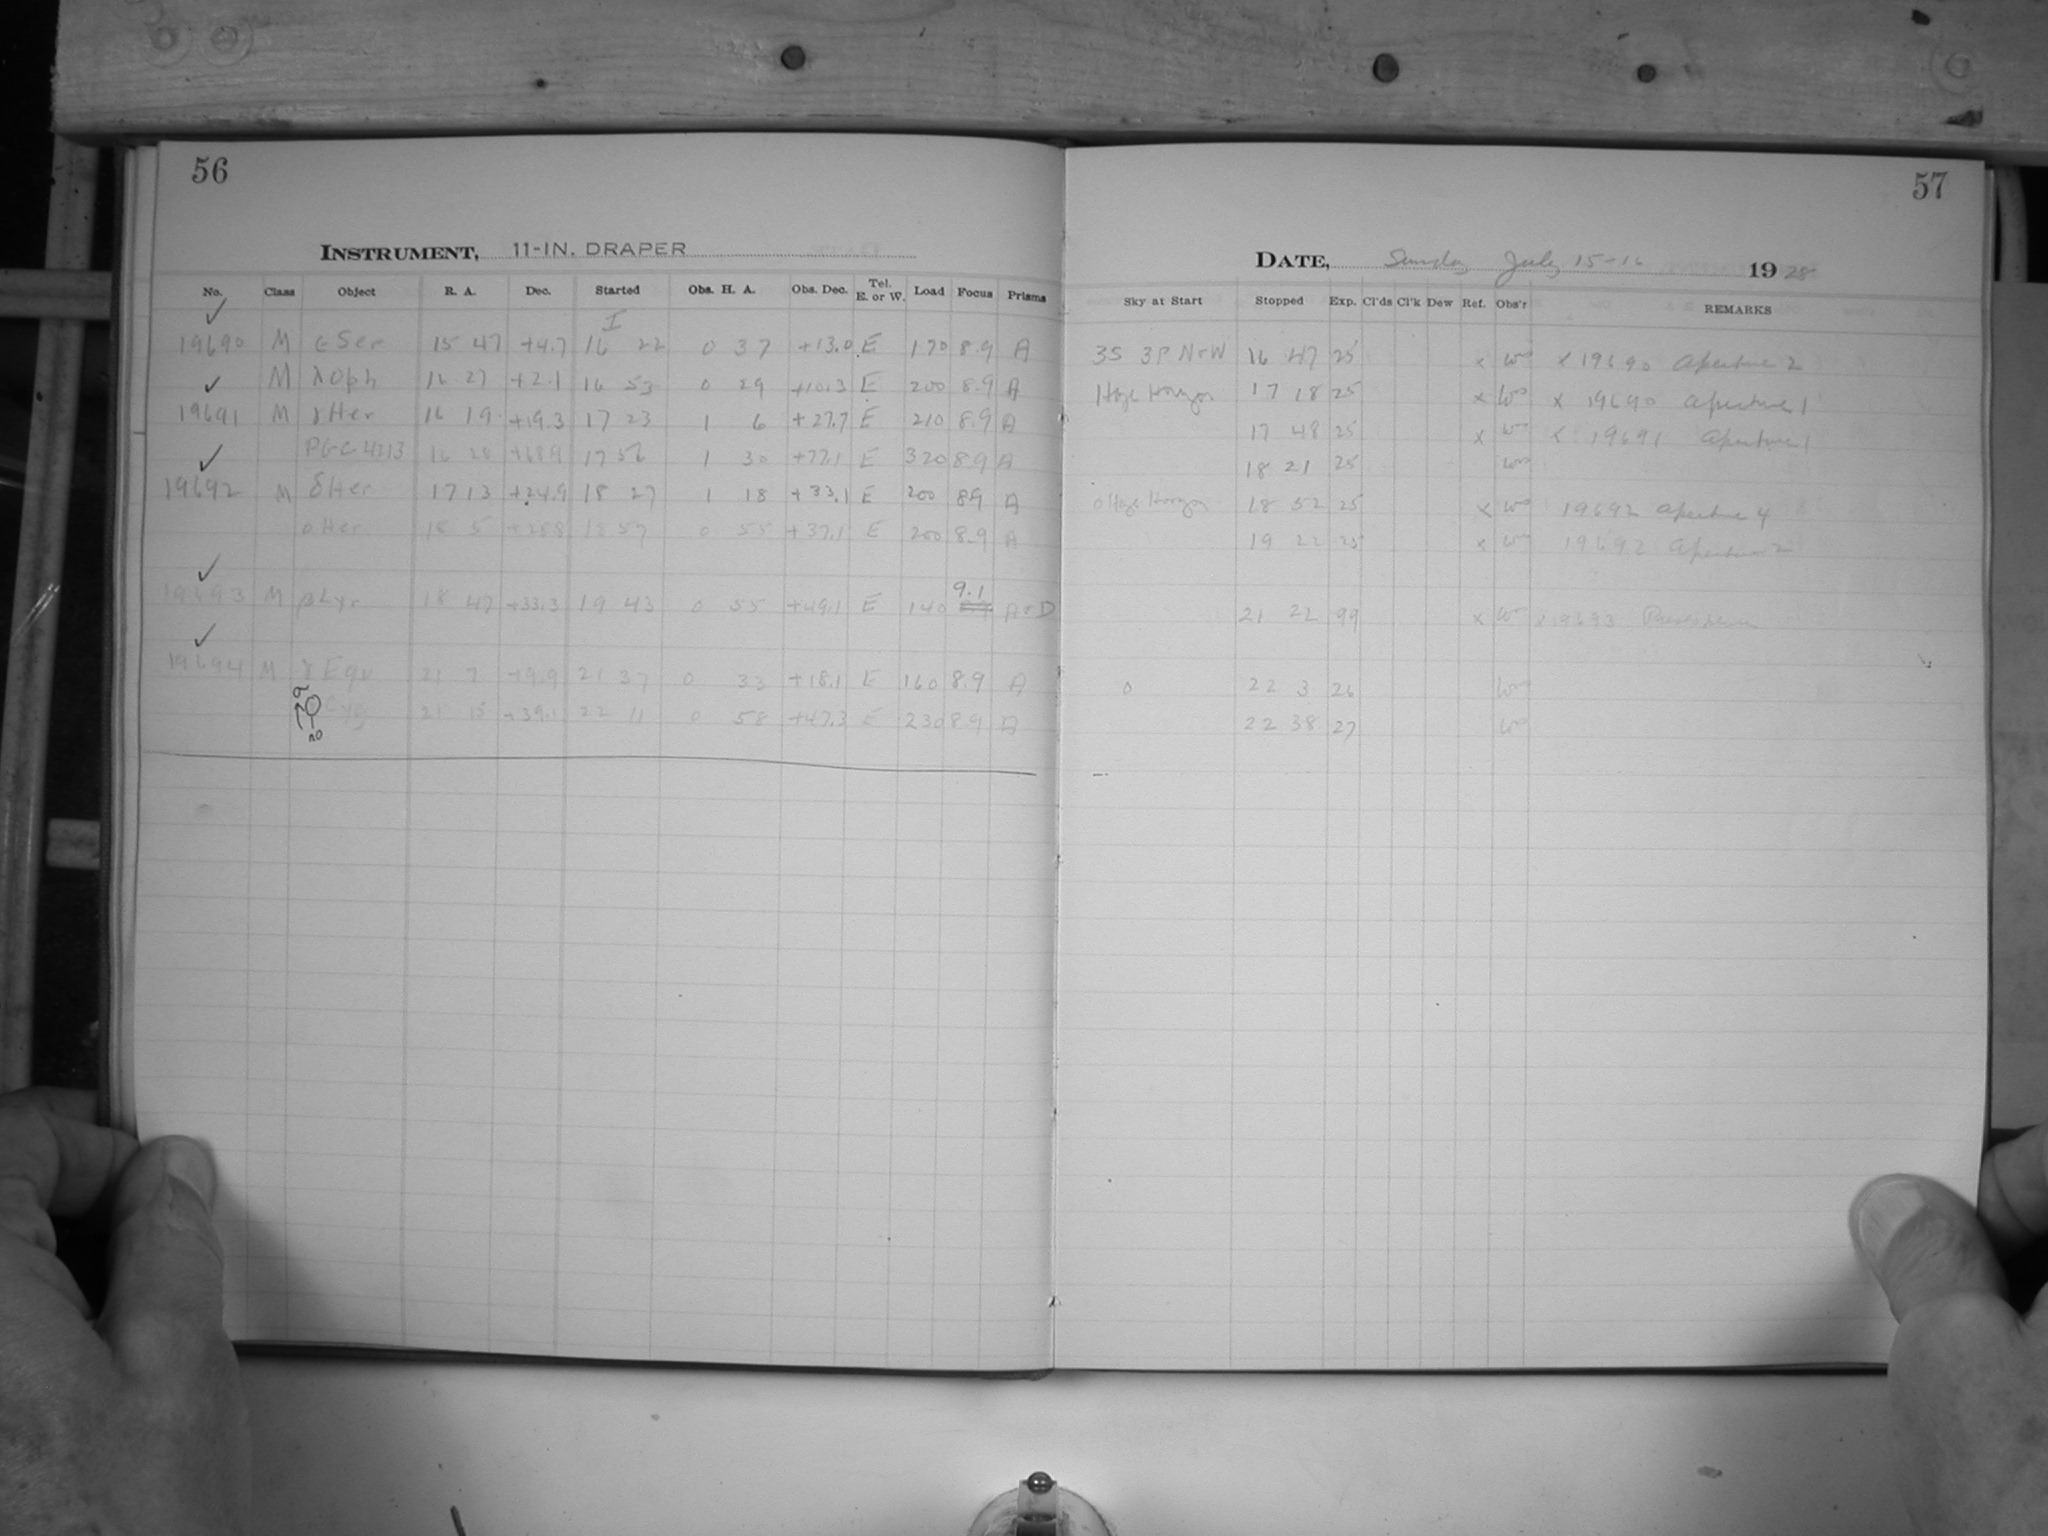 56
INSTRUMENT, 11-IN. DRAPER
No. Class Object R. A. Dec. Started Obs. H. A. Obs. Dec. Tel. E. or W. Load Focus Prisms
I
19690 M ε Ser 15 47 +4.7 16 22 0 37 +13.0 E 170 8.9 A
M λ Oph 16 27 +2.1 16 53 0 29 +10.3 E 200 8.9 A
19691 M γ Her 16 19 +19.3 17 23 1 6 +27.7 E 210 8.9 A
16 28 +68.9 17 56 1 30 +77.1 E 320 8.9 A
19692 M δ Her 17 13 +24.9 18 27 1 18 +33.1 E 200 8.9 A
o Her 18 5 +28.8 18 57 0 55 +37.1 E 200 8.9 A
9.1
19693 M β Lyr 18 47 +33.3 19 43 0 55 +49.1 E 140 A+D
19694 M γ Equ 21 7 +9.9 21 37 0 33 +18.1 E 160 8.9 A
σ Cyg 21 15 +39.1 22 11 0 58 +47.3 E 230 8.9 A
no
57
DATE, Sunday July 15-16 1928
Sky at Start Stopped Exp. Cl'ds Cl'k Dew Ref. Obs'r REMARKS
3S 3P N+W 16 47 25 x x 19690 Aperture 2
Haze Horizon 17 18 25 x x 19690 Aperture 1
17 48 25 x x 19691 Aperture 1
18 21 25
0 Haze Horizon 18 52 25 x 19692 Aperture 4
19 22 25 x 19692 Aperture 2
21 22 99 x x 19693
0 22 3 26
22 38 27